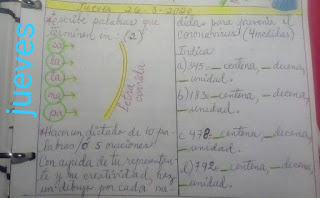 jueves
Jueves 26-3-2020
Escribe palabras que
terminen en: (2)
sa
la
ta
ma
pa
Letra corrida
*Hacer un dictado de 10 pa-
labras/o 5 oraciones
Con ayuda de tu representan-
te y tu creatividad, haz
un dibujo por cada me-
dida para prevenir el
coronavirus (4 medidas)
Indica
a) 345= _ centena, _ decena,
_ unidad.
b) 183= _ centena, _ decena,
_ unidad.
c) 478= _ centena, _ decena,
_ unidad.
d) 792= _ centena, _ decena,
_ unidad.